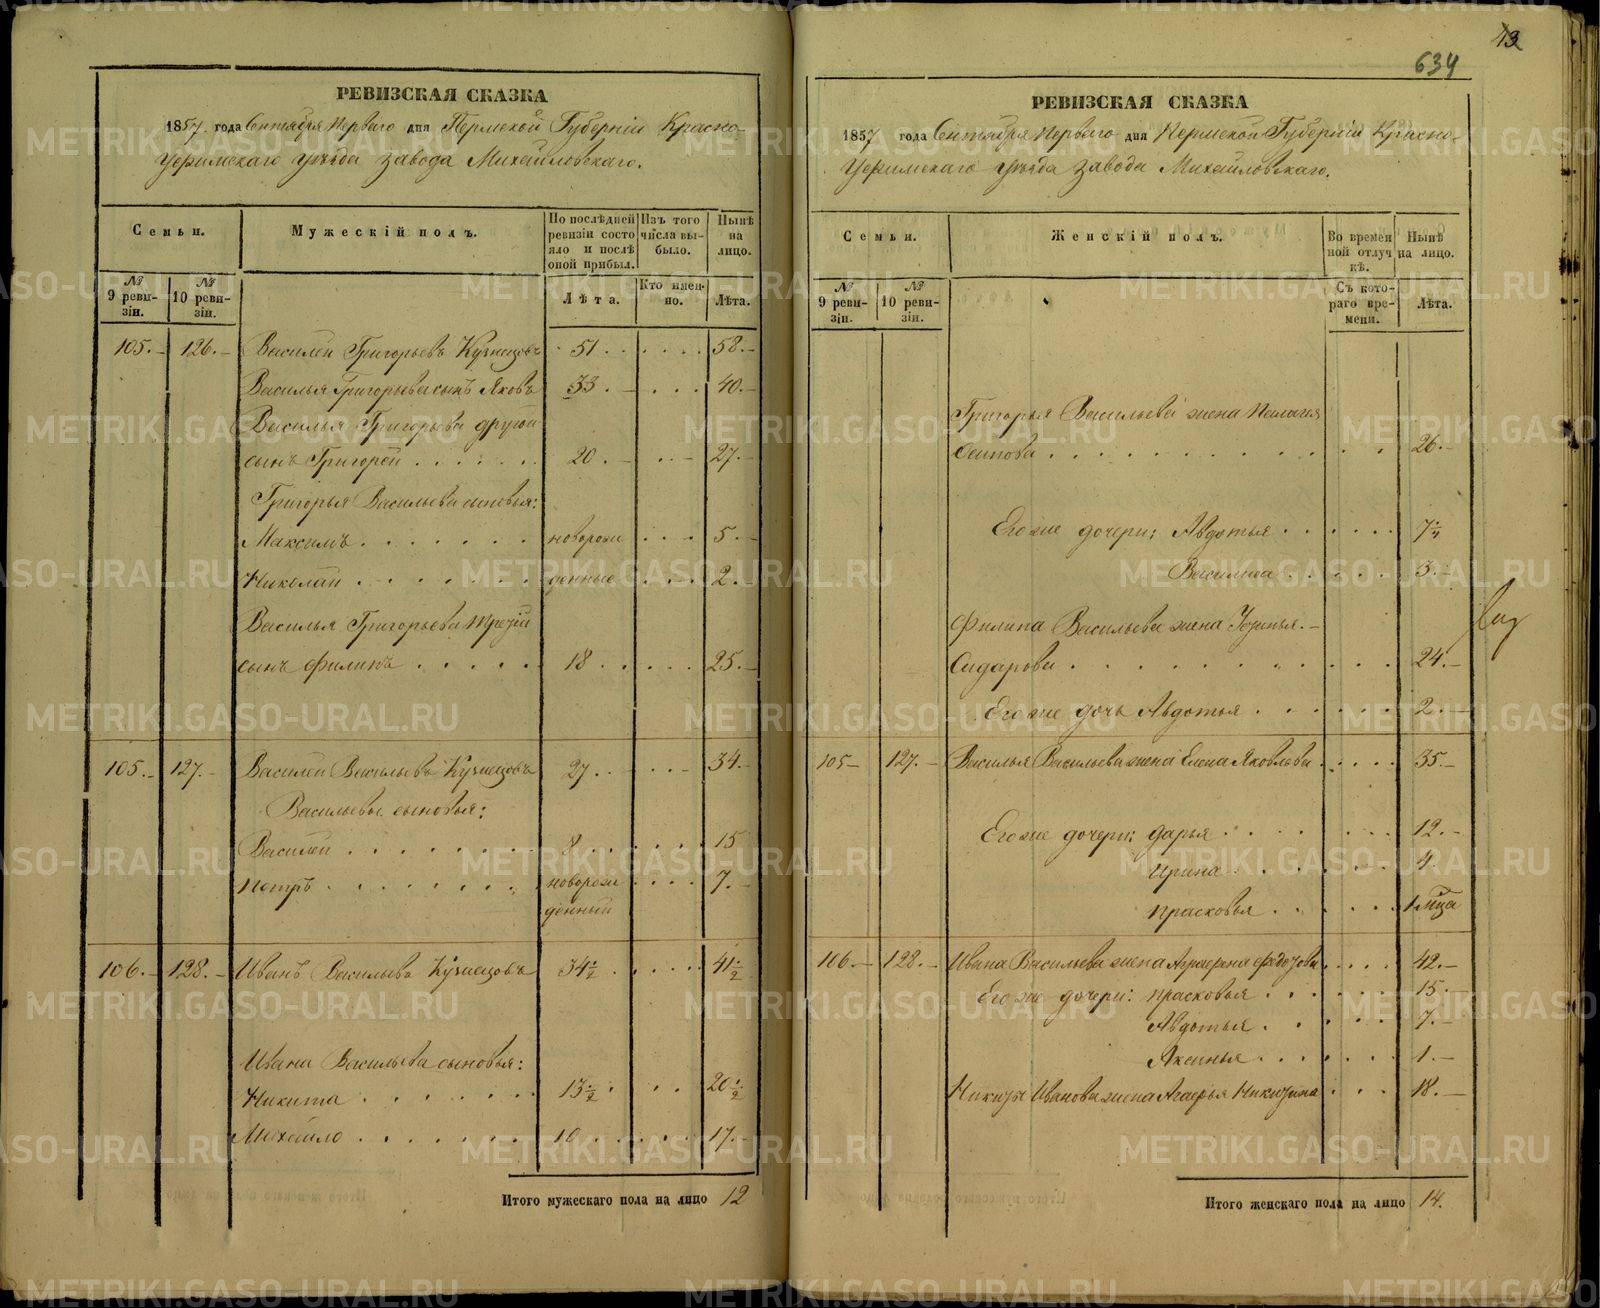 РЕВИЗСКАЯ СКАЗКА
1857 года Сентября Перваго дня Пермской Губерніи Красно-
уфимскаго уѣзда завода Михайловскаго.
Семьи.
Мужескій полъ.
По послѣдней ревизіи состояло и послѣ оной прибыл.
Изъ того числа выбыло.
Нынѣ на лицо.
№ 9 ревизіи.
№ 10 ревизіи.
Лѣта.
Кто именно.
Лѣта.
105. 126. Василей Григорьевъ Кузнецовъ 51 . . . . . . 58.
Василья Григорьева сынъ Яковъ 33 . . . . 40.
Василья Григорьева другой
сынъ Григорей . . . . . . 20 . . . . 27.
Григорья Васильева сыновья:
Максимъ . . . . . . . новорож . . . 5.
Николай . . . . . . . денные . . . 2.
Василья Григорьева третій
сынъ Филипъ . . . . . 18 . . . . . 25.
105. 127. Василей Васильевъ Кузнецовъ 27 . . . . . 34.
Васильевы сыновья:
Василей . . . . . . . . 8 . . . . . . 15
Петръ . . . . . . . . новорож . . . . 7.
денный
106. 128. Иванъ Васильевъ Кузнецовъ 34 1/2 . . . . 41 1/2
Ивана Васильева сыновья:
Никита . . . . . . . 13 1/2 . . . 20 1/2
Михайло . . . . . . . 10 . . . . . . 17.
Итого мужескаго пола на лицо 12
634
РЕВИЗСКАЯ СКАЗКА
1857 года Сентября Перваго дня Пермской Губерніи Красно-
уфимскаго уѣзда завода Михайловскаго.
Семьи.
Женскій полъ.
Во временной отлучкѣ.
Нынѣ на лицо.
№ 9 ревизіи.
№ 10 ревизіи.
Съ котораго времени.
Лѣта.
Григорья Васильева жена Пелагия
Осипова . . . . . . . . . . . . . 26.
Его же дочери: Авдотья . . . . . . 7 1/4
Василиса . . . . . . 3.
Филипа Васильева жена Устинья.
Сидарова . . . . . . . . . . . . 24.
Его же дочь Авдотья . . . . . . 2.
105 127. Василья Васильева жена Елена Яковлева . . . . . 35.
Его же дочери: Дарья . . . . . . . 12.
Ирина . . . . . . . 4.
Прасковья . . . . . . 1 мца
106. 128. Ивана Васильева жена Аграфена Федотова . . . . 42.
Его же дочери: Прасковья . . . . . . 15.
Авдотья . . . . . . 7.
Аксинья . . . . . . 1.
Никиты Иванова жена Агафья Никитина . . . 18.
Итого женскаго пола на лицо 14.
METRIKI.GASO-URAL.RU